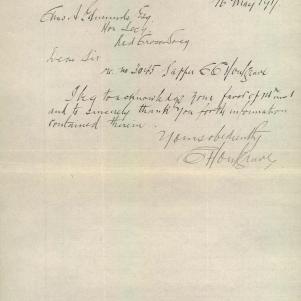 16 May 1917
Chas. A. Edmunds Esq.
Hon Secy
Red Cross Socy
Dear Sir
re. no 2045 Sapper CE Honeysave
I beg to acknowledge your favor of 14th inst
and to sincerely thank you for the information
contained therein.
Yours obediently